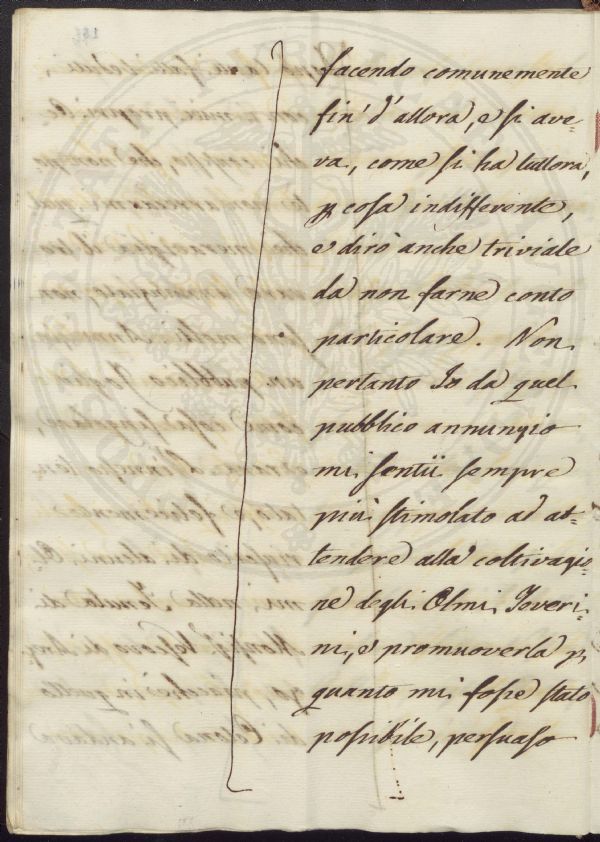 facendo comunemente
fin' d' allora, e si ave-
va, come si ha tuttora,
p cosa indifferente,
e dirò anche triviale
da non farne conto
particolare. Non
pertanto Io da quel
pubblico annunzio
mi sentii sempre
più stimolato ad at-
tendere alla coltivazio-
ne degli Olmi Joveri-
ni, e promuoverla p
quanto mi fosse stato
possibile, persuaso